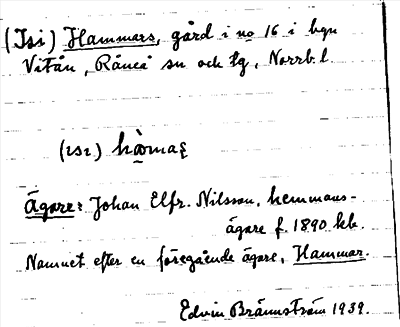 (Isi) Hammars, gård i no 16 i byn
Vitån, Råneå sn och tg, Norrb. l.
(ısı)
Ägare: Johan Elfr. Nilsson, hemmans-
ägare f. 1890 hb.
Namnet efter en föregående ägare, Hammar.
Edvin Brännström 1939.